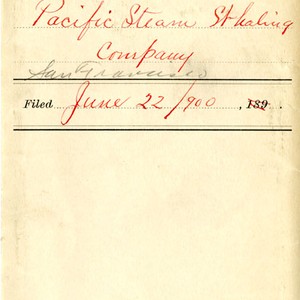 Pacific Steam Whaling
Company
San Francisco
Filed June 22/900 , 189 .